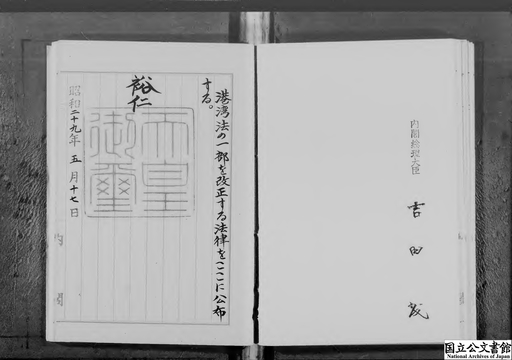 内閣総理大臣
吉田茂
港湾法の一部を改正する法律をここに公布
する。
裕仁
天皇
御璽
昭和二十九年五月十七日
国立公文書館
National Archives of Japan